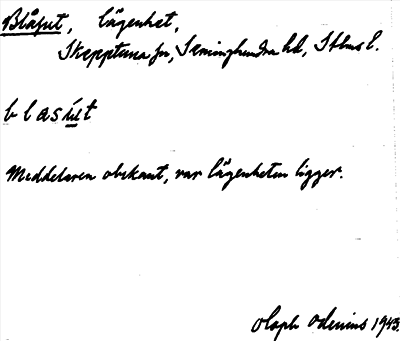 Blåsut, lägenhet,
Skepptuna sn, Seminghundra hd, Sthms l.
blasút
Meddelaren obekant, var lägenheten ligger.
Oloph Odenius 1943.